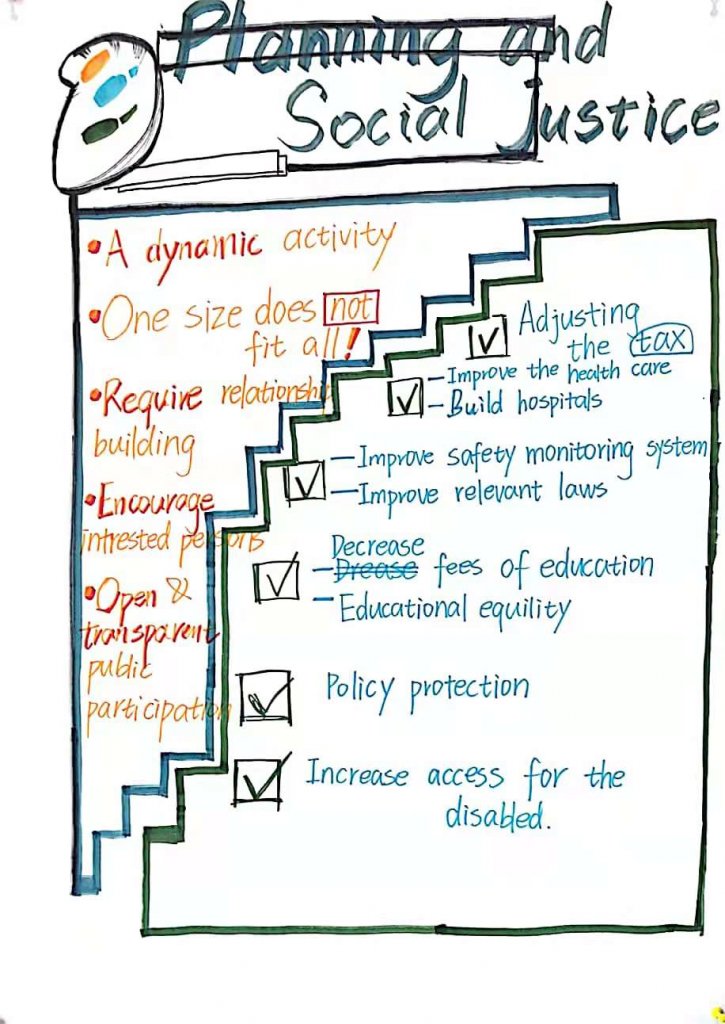 Planning and
Social Justice
•A dynamic activity
•One size does not
fit all!
•Require relationship
building
•Encourage
intrested persons
•Open &
transparent
public
participation
Adjusting
the tax
–Improve the health care
–Build hospitals
–Improve safety monitoring system
–Improve relevant laws
Decrease
–Drease fees of education
–Educational equility
Policy protection
Increase access for the
disabled.